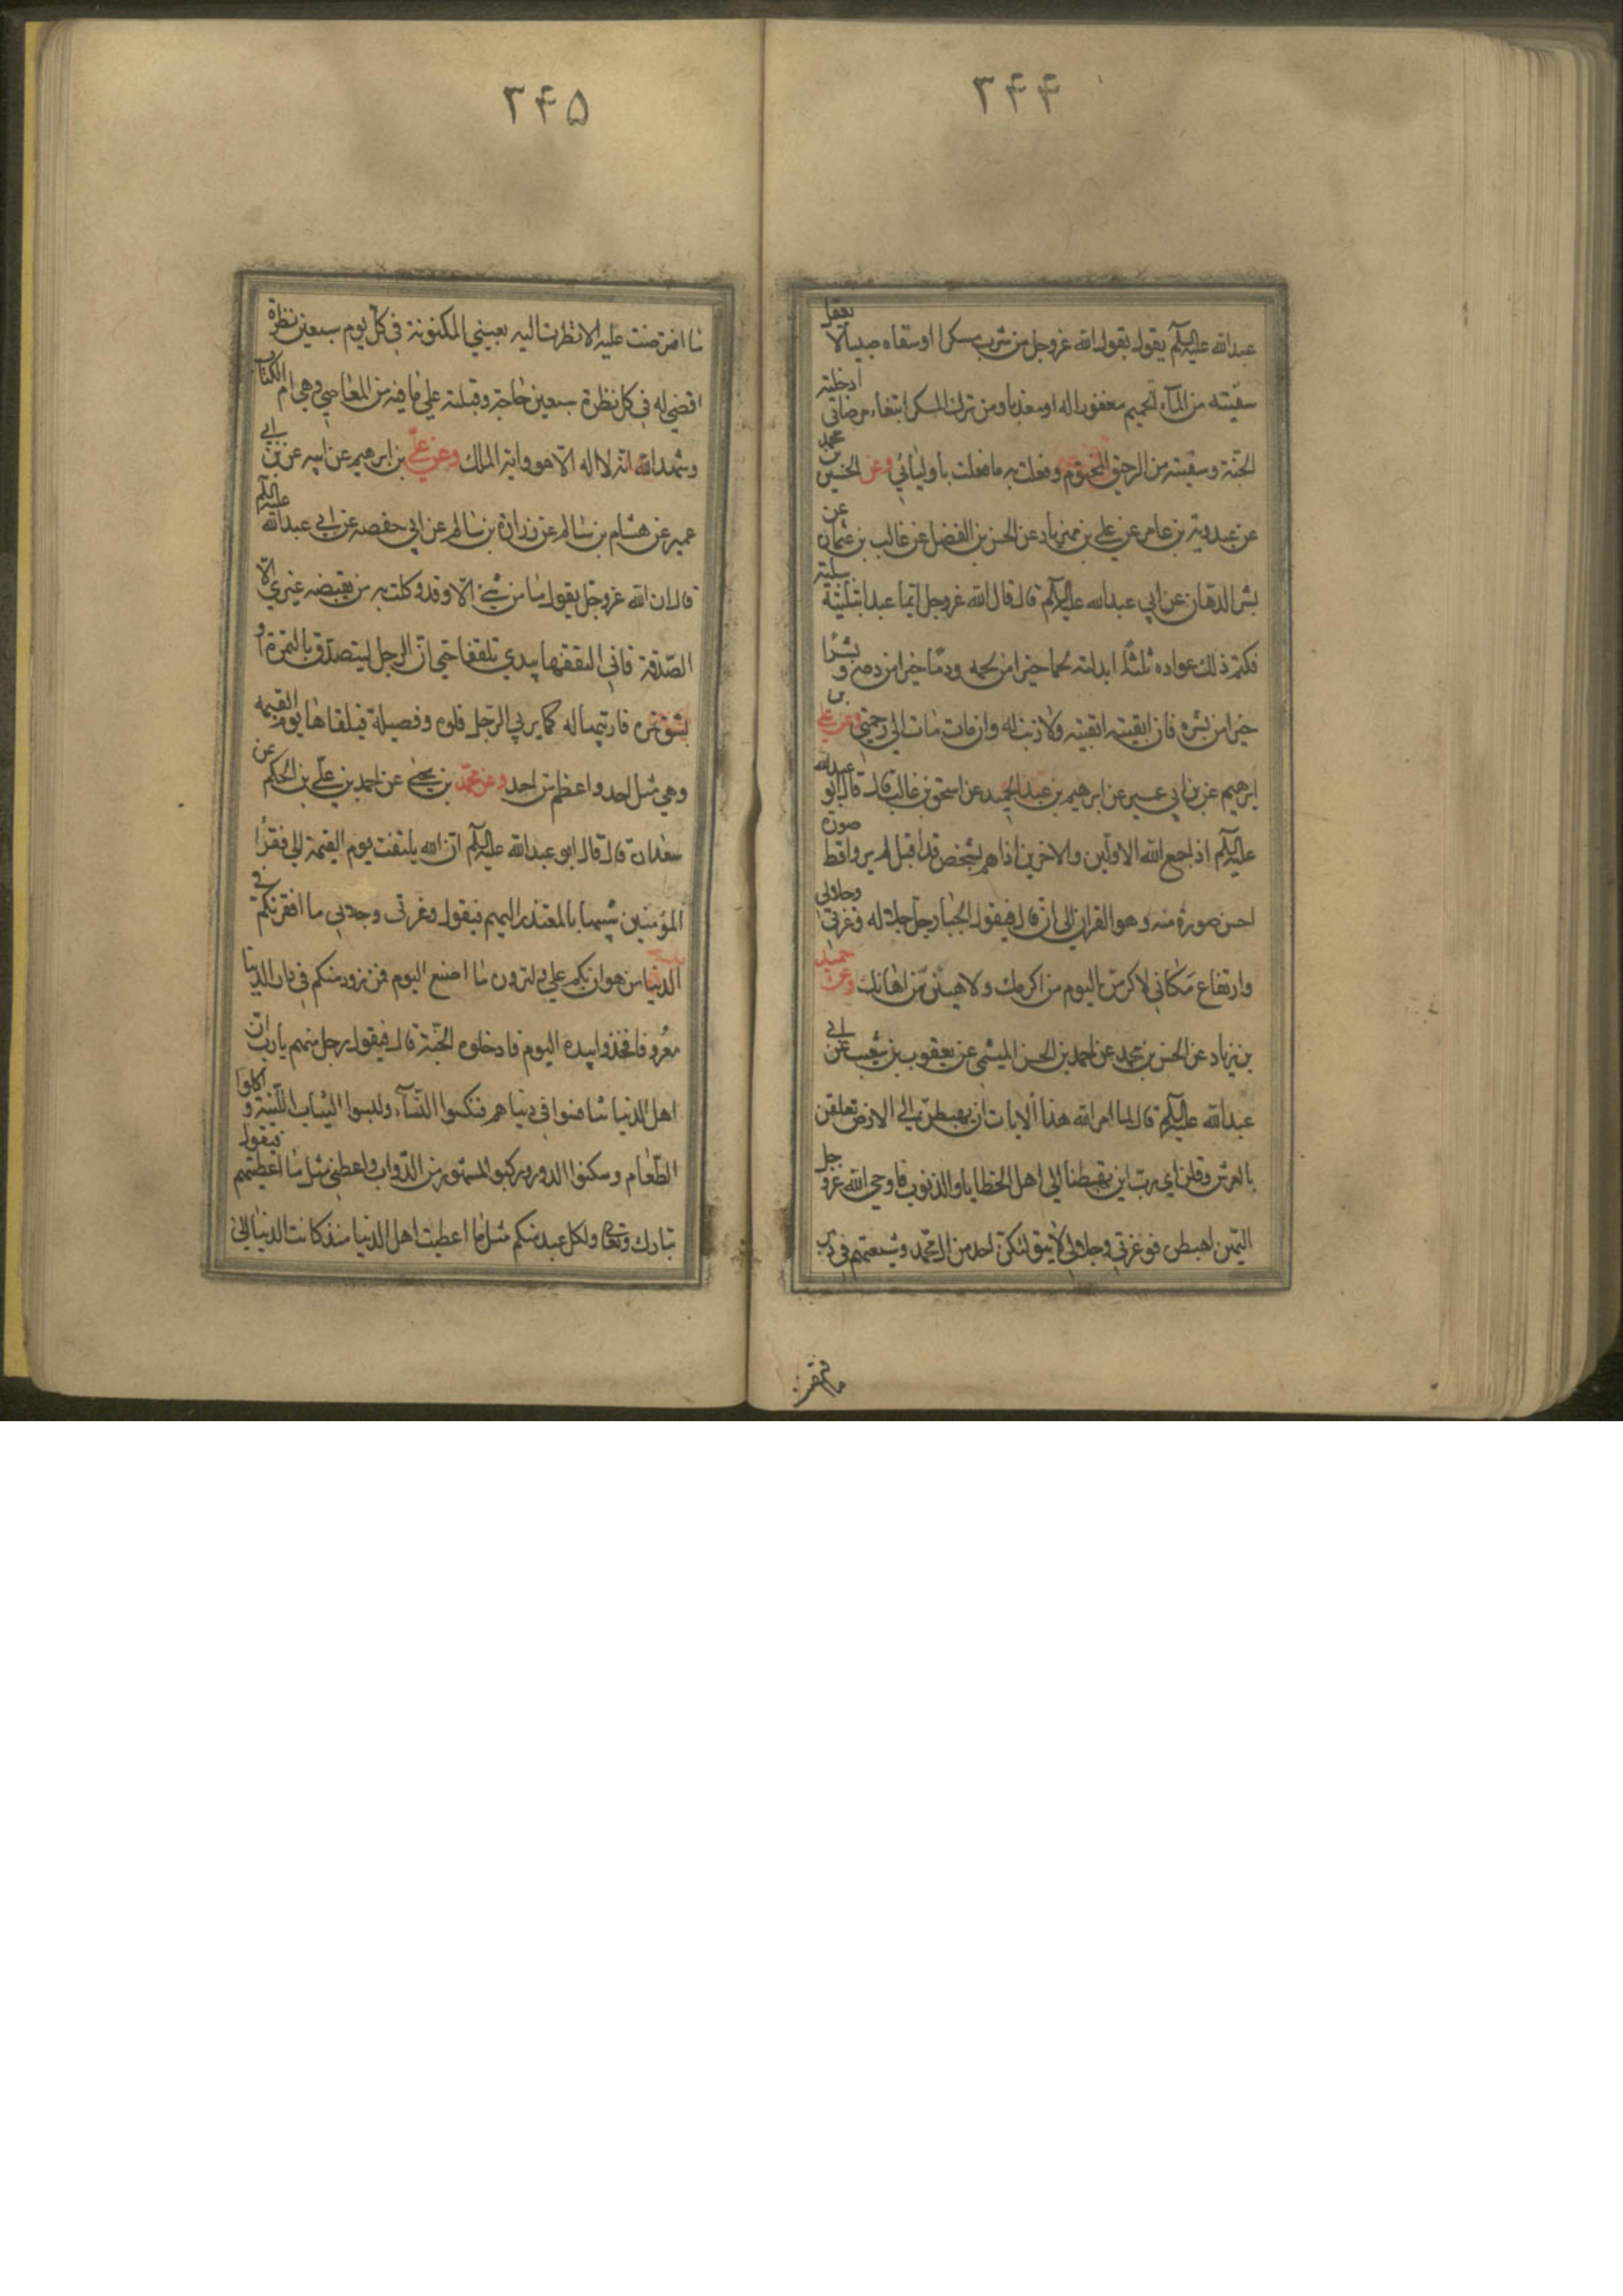 ۳۴۴
عبدالله عليه السلم يقول يقول الله عزوجل من شرب مسكرا او سقاه صبيا لا يعقل
سقيته من المآء الحميم مغفورا له او معذبا ومن ترك المسكر ابتغاء مرضاتي ادخلته
الجنّة وسقيته من الرحيق المختوم وفعلت به ما فعلت باوليائي وعن الحسين بن محمد
عن عبدويه بن عامر عن علي بن مهزياد عن الحسن بن الفضل عن غالب بن عثمان عن
بشر الدهان عن ابي عبدالله عليه السلم قال قال الله عزوجل ايما عبد ابتليته ببلية
فكتم ذلك عواده ثلثا ابدلته لحما خيرا من لحمه ودمًا خيرا من دمه و بشرًا
خيرا من بشره فان ابقيته ابقيته ولا ذنب له وان مات مات الى رحمتي وعن علي بن
ابرهيم عن بن ابي عمير عن ابرهيم بن عبد الحميد عن اسحق بن غالب قال قال ابو عبدالله
عليه السلم اذا جمع الله الاولين والاخرين اذا هم بشخص قد اقبل لم يروا قط صورة
احسن صورة منه وهو القران الى ان قال فيقول الجبار جل جلاله وعزتي وجلالي
وارتفاع مكاني لاكرمن اليوم من اكرمك ولاهينن من اهانك وعن حميد
بن زياد عن الحسن بن محمد عن احمد بن الحسن الميثمي عن يعقوب بن شعيب عن ابي
عبدالله عليه السلم قال لما امر الله هذا الايات ان يهبطن الى الارض تعلقن
بالعرش وقلن اي رب اين تهبطنا الى اهل الخطايا والذنوب فاوحى الله عزو جل
اليهن اهبطن فو عزتي وجلالي لا يتلوكن احد من ال محمد وشيعتهم في دبر
ما افترضت
۳۴۵
ما افترضت عليه الا نظرت اليه بعيني المكنونة في كلّ يوم سبعين نظرة
اقضي له في كل نظرة سبعين حاجة وقبلته على ما فيه من المعاصي وهي ام الكتاب و
وشهد الله انه لا اله الا هو واية الملك وعن علي بن ابرهيم عن ابيه عن بن ابي
عمير عن هشام بن سالم عن زرارة بن سالم عن ابي حفصه عن ابي عبدالله عليه السلم
قال ان الله عزوجل يقول ما من شئ الا وقد وكلت به من يقبضه غيري الا
الصّدقة فاني اتلقفها بيدي تلقفا حتى ان الرجل ليتصدق بالتمرة او
بشق تمرة فاربيها له كما يربي الرّجل فلوه وفصيله فيلقاها يوم القيمه
وهي مثل احد و اعظم من احد وعن محمد بن يحيى عن احمد بن علي بن الحكم عن
سعدان قال قال ابو عبدالله عليه السلم ان الله يلتفت يوم القيمة الى فقرا
المؤمنين شبيها بالمعتذر اليهم فيقول وعزتي وجلالي ما افقرتكم في
الدنيا من هوان بكم علي ولترون ما اصنع اليوم فمن زود منكم في دار الدنيا
معروفا فخذوا بيده اليوم فادخلوه الجنّة قال فيقول رجل منهم يارب ان
اهل الدنيا تنافسوا في دنياهم فنكحوا النّسآء ولبسوا الثياب اللينة و اكلوا
الطّعام وسكنوا الدور وركبوا المشهور من الدّواب واعطني مثل ما اعطيتهم فيقول
تبارك وتعالى ولكل عبد منكم مثل ما اعطيت اهل الدنيا منذ كانت الدنيا الى